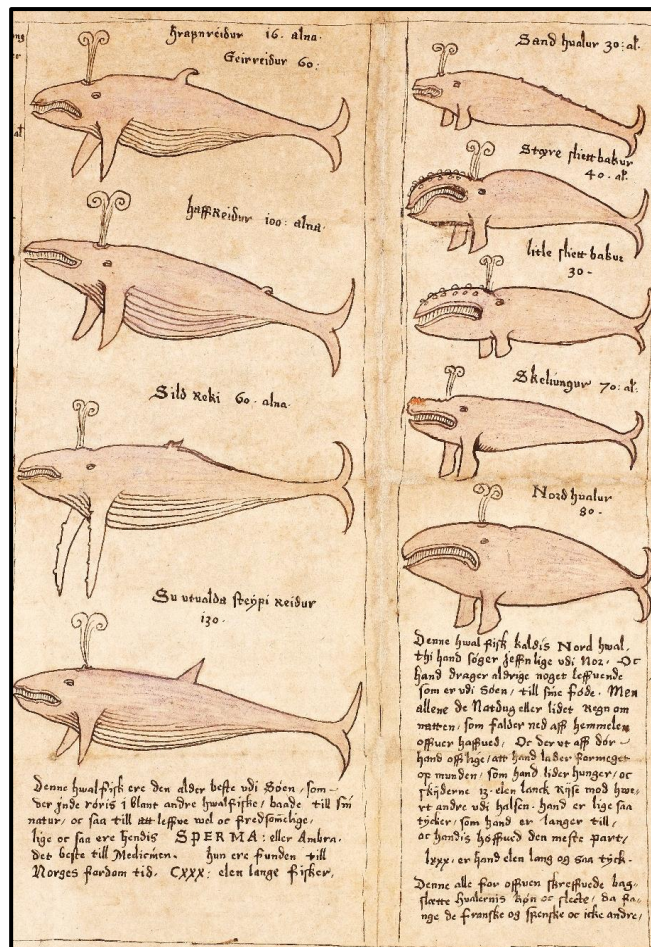 hrafnreidur 16. alna.
Geirreidur 60:
haffReidur 100: alna.
Sild Reki 60. alna.
Su utualda steypi Reidur
130.
Denne hwalfisk ere den alder beste vdi Söen, som
der inde röris i blant andre hwalfiske, baade till sin
natur, oc saa till att leffve wol oc fredsomelige,
lige oc saa ere hendis SPERMA: eller Ambra.
det beste till Medicinen. hun ere funden till
Norges fordom tid. CXXX: elen lange fisker.
Sand hualur 30: al.
Större slettbakur
40. al.
litle slettbakur
30.
Skeliungur 70: al.
Nordhualur
80.
Denne hwal fisk kaldis Nord hwal,
thi hand söger Jeffnlige vdi Nor. Oc
hand drager aldrige noget leffuende
som er vdi Söen, till sine föde. Men
allene de Natdug eller lidet Regn om
natten, som falder ned aff hemmelen
offuer haffued. Oc der ut aff dör
hand offlige, att hand lader formeget
op munden, som hand lider hunger, oc
skyderne 13. elen lanck Rijse mod hwe
rt andre vdi halsen. hand er lige saa
tycker, som hand er langer till,
oc handis höffued den meste part,
lxxx. er hand elen lang og saa tyck.
Denne alle for offuen skreffuede bag-
slætte hualernis kön oc slecte, da fa
nge de franske og spenske oc icke andre,